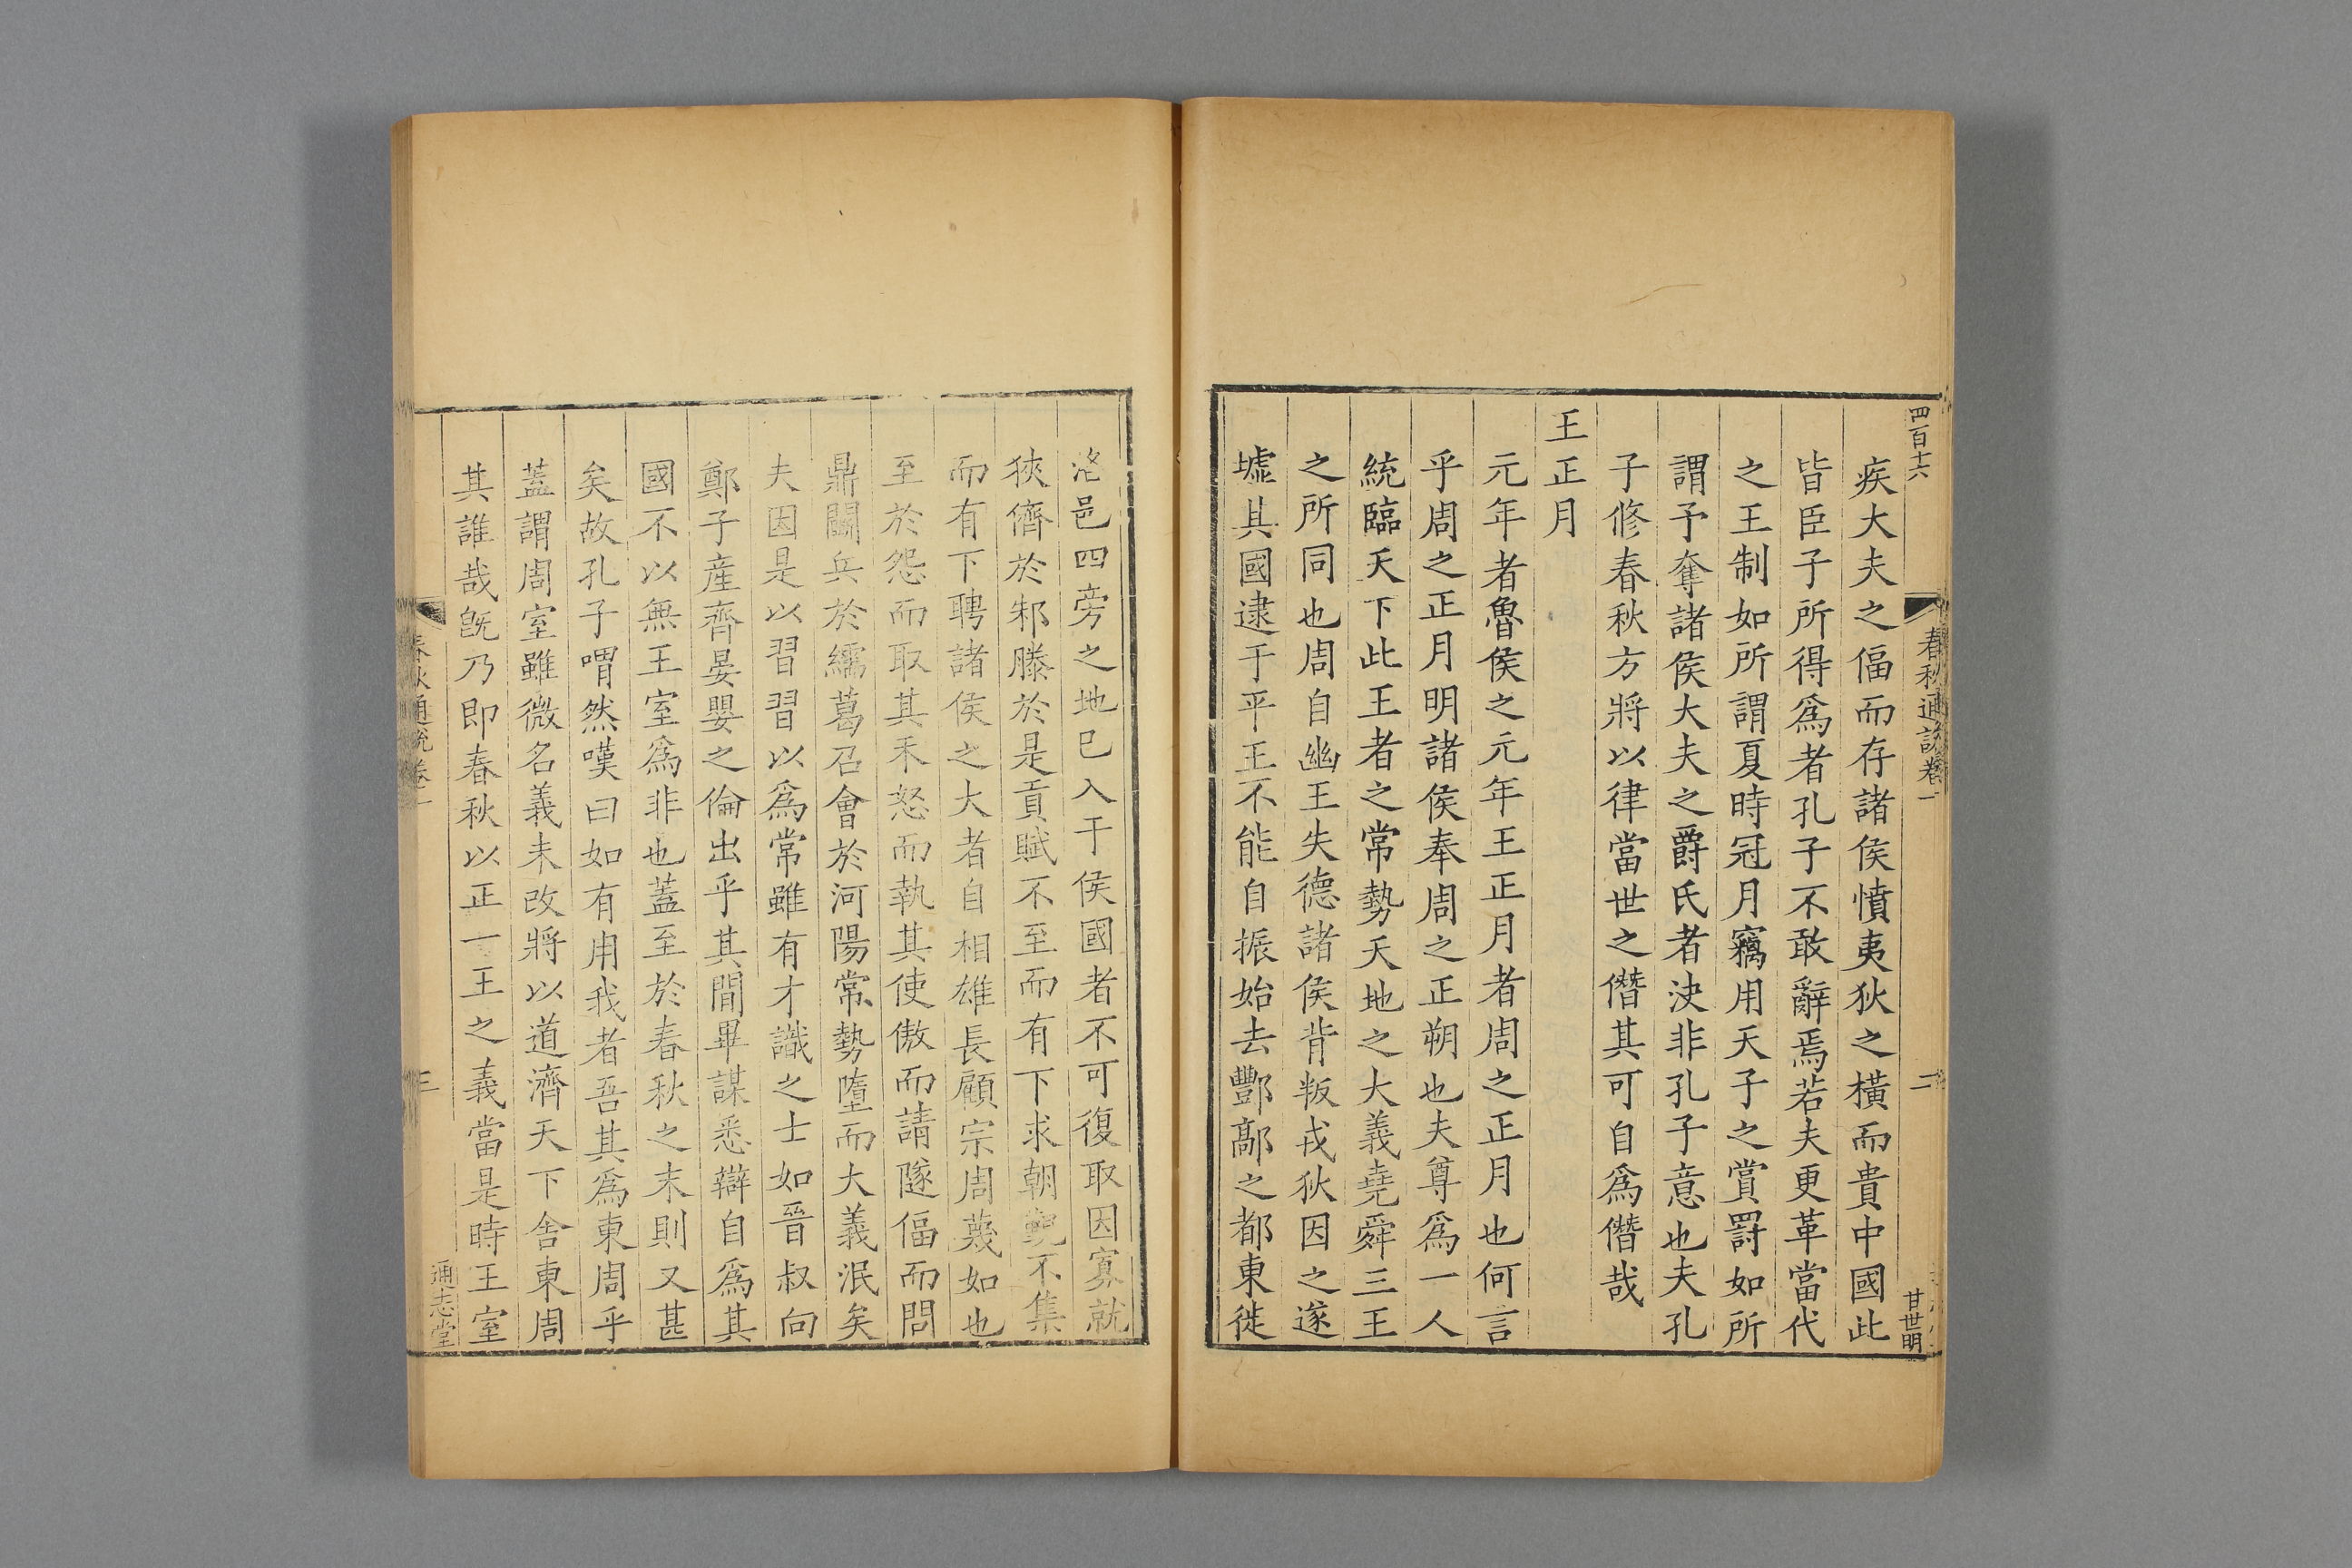 四百十六
春秋通說卷一
二
甘世明
疾大夫之偪而存諸侯憤夷狄之橫而貴中國此
皆臣子所得爲者孔子不敢辭焉若夫更革當代
之王制如所謂夏時冠月竊用天子之賞罸如所
謂予奪諸侯大夫之爵氏者決非孔子意也夫孔
子修春秋方將以律當世之僭其可自爲僭哉
王正月
元年者魯侯之元年王正月者周之正月也何言
乎周之正月明諸侯奉周之正朔也夫尊爲一人
統臨天下此王者之常勢天地之大義堯舜三王
之所同也周自幽王失德諸侯背叛戎狄因之遂
墟其國逮于平王不能自振始去酆鄗之都東徙
洛邑四旁之地已入于侯國者不可復取因寡就
狹儕於邾滕於是貢賦不至而有下求朝覲不集
而有下聘諸侯之大者自相雄長顧宗周蔑如也
至於怨而取其禾怒而執其使傲而請隧偪而問
鼎鬭兵於繻葛召會於河陽常勢墮而大義泯矣
夫因是以習習以爲常雖有才識之士如晉叔向
鄭子產齊晏嬰之倫出乎其間畢謀悉辯自爲其
國不以無王室爲非也蓋至於春秋之末則又甚
矣故孔子喟然嘆曰如有用我者吾其爲東周乎
蓋謂周室雖微名義未改將以道濟天下舍東周
其誰哉旣乃即春秋以正一王之義當是時王室
春秋通說卷一
三
通志堂